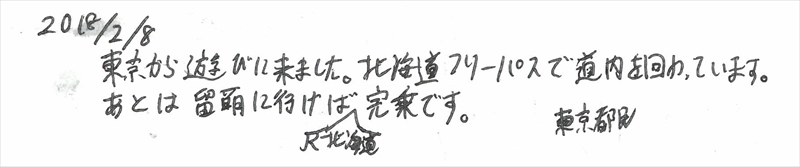 2018/2/8
東京から遊びに来ました。北海道フリーパスで道内を回っています。
あとは留萌に行けば完乗です。
JR北海道
東京都民